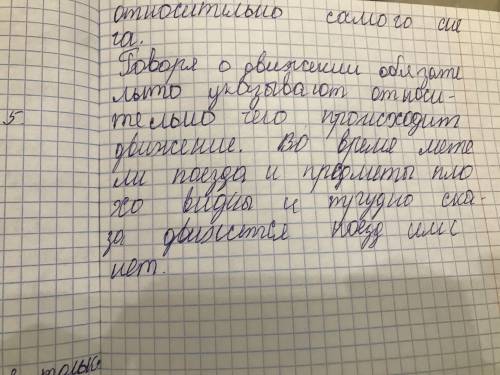 относительно самого сне
га.
Говоря о движении обязате
льно указывают относи-
5 тельно чего происходит
движение. Во время мете
ли поезда и предметы пло
хо видны и тругудно ска-
за движется поезд или
нет.
только